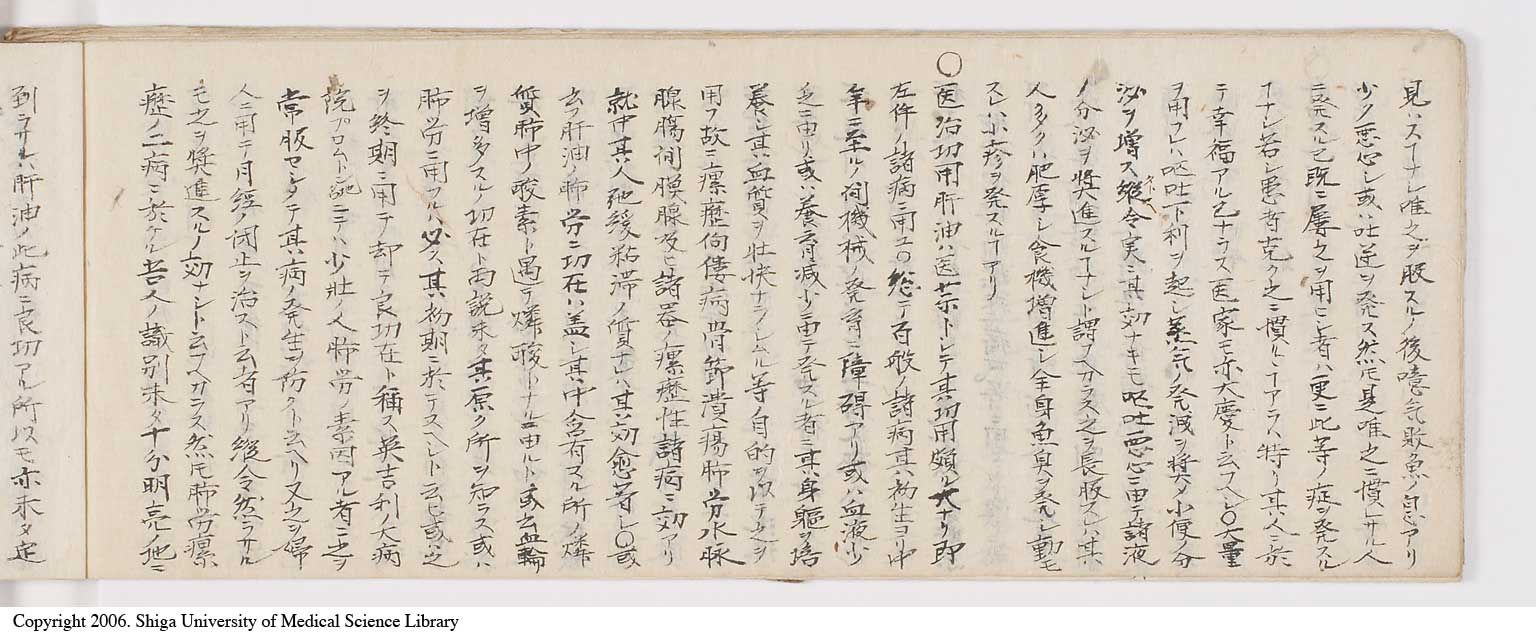 見ハスーナレ唯之ヲ服スルノ後噫气敗魚ノ自息アリ
少ノ悪心シ或ハ吐逆ヲ発ス然𪜈是唯之ニ慣レサル人
ニ発スル已既ニ屢之ヲ用ヒシ者ハ更ニ此等ノ症ヲ発スル
ナシ若シ患者克ク之ニ慣ルヽアラハ特リ其人ニ於
テ幸福アル已ナラス医家モ亦大慶ト云フヘシ〇大量
ヲ用フレハ呕吐下利ヲ起シ蒸气ノ発洩ヲ奬メ小便ノ分
泌ヲ増ス縦令実ニ其効ナキモ呕吐悪心ニ由テ諸液
ノ分泌ヲ奬進スルナシト謂フヘカラス之ヲ長服スレハ其
人多クハ肥厚シ食機増進シ全身魚臭ヲ発シ動モ
スレハ小疹ヲ発スルアリ
〇医治功用肝油ハ医薬トシテ其功用頗ル大ナリ即
左件ノ諸病ニ用ユ〇総テ百般ノ諸病其初生ヨリ中
年ニ至ルノ間機械ノ発育ニ障碍アリ或ハ血液少
乏ニ由リ或ハ養育減少ニ由テ発スル者ニ其身軀ヲ培
養シ其血質ヲ壮快ナラシムル等自的ヲ以テ之ヲ
用フ故ニ瘰癧佝僂病骨節潰瘍肺労水脉
腺腸間膜腺及ヒ諸器ノ瘰癧性諸病ニ効アリ
就中其人弛緩粘滞ノ質ナレハ其効愈著シ〇或
云フ肝油ノ肺労ニ功在ハ盖シ其中含有スル所ノ燐
質肺中ノ酸素ト遇テ燐酸トナルニ由ルト或云血輪
ヲ増多スルノ功在ト両説未タ其原ク所ヲ知ラス或ハ
肺労ニ用フルハ必ス其初期ニ於テスヘシト云ヒ或ハ之
ヲ終期ニ用テ却テ良功在ト稱ス英吉利ノ大病
院プロムトン砲ニテハ少壮ノ人肺労ノ素因アル者ニ之ヲ
常服セシメテ其病ノ発生ヲ防クト云ヘリ又之ヲ婦
人ニ用テ月経ノ閉止ヲ治スト云者アリ縦令然ラサル
モ之ヲ奬進スルノ効ナシト云フヘカラス然𪜈肺労瘰
癧ノ二病ニ於ケル吾人ノ識別未タ十分明亮ノ地ニ
到ラサレハ肝油ノ此病ニ良功アル所以モ亦未タ定
Copyright 2006. Shiga University of Medical Science Library